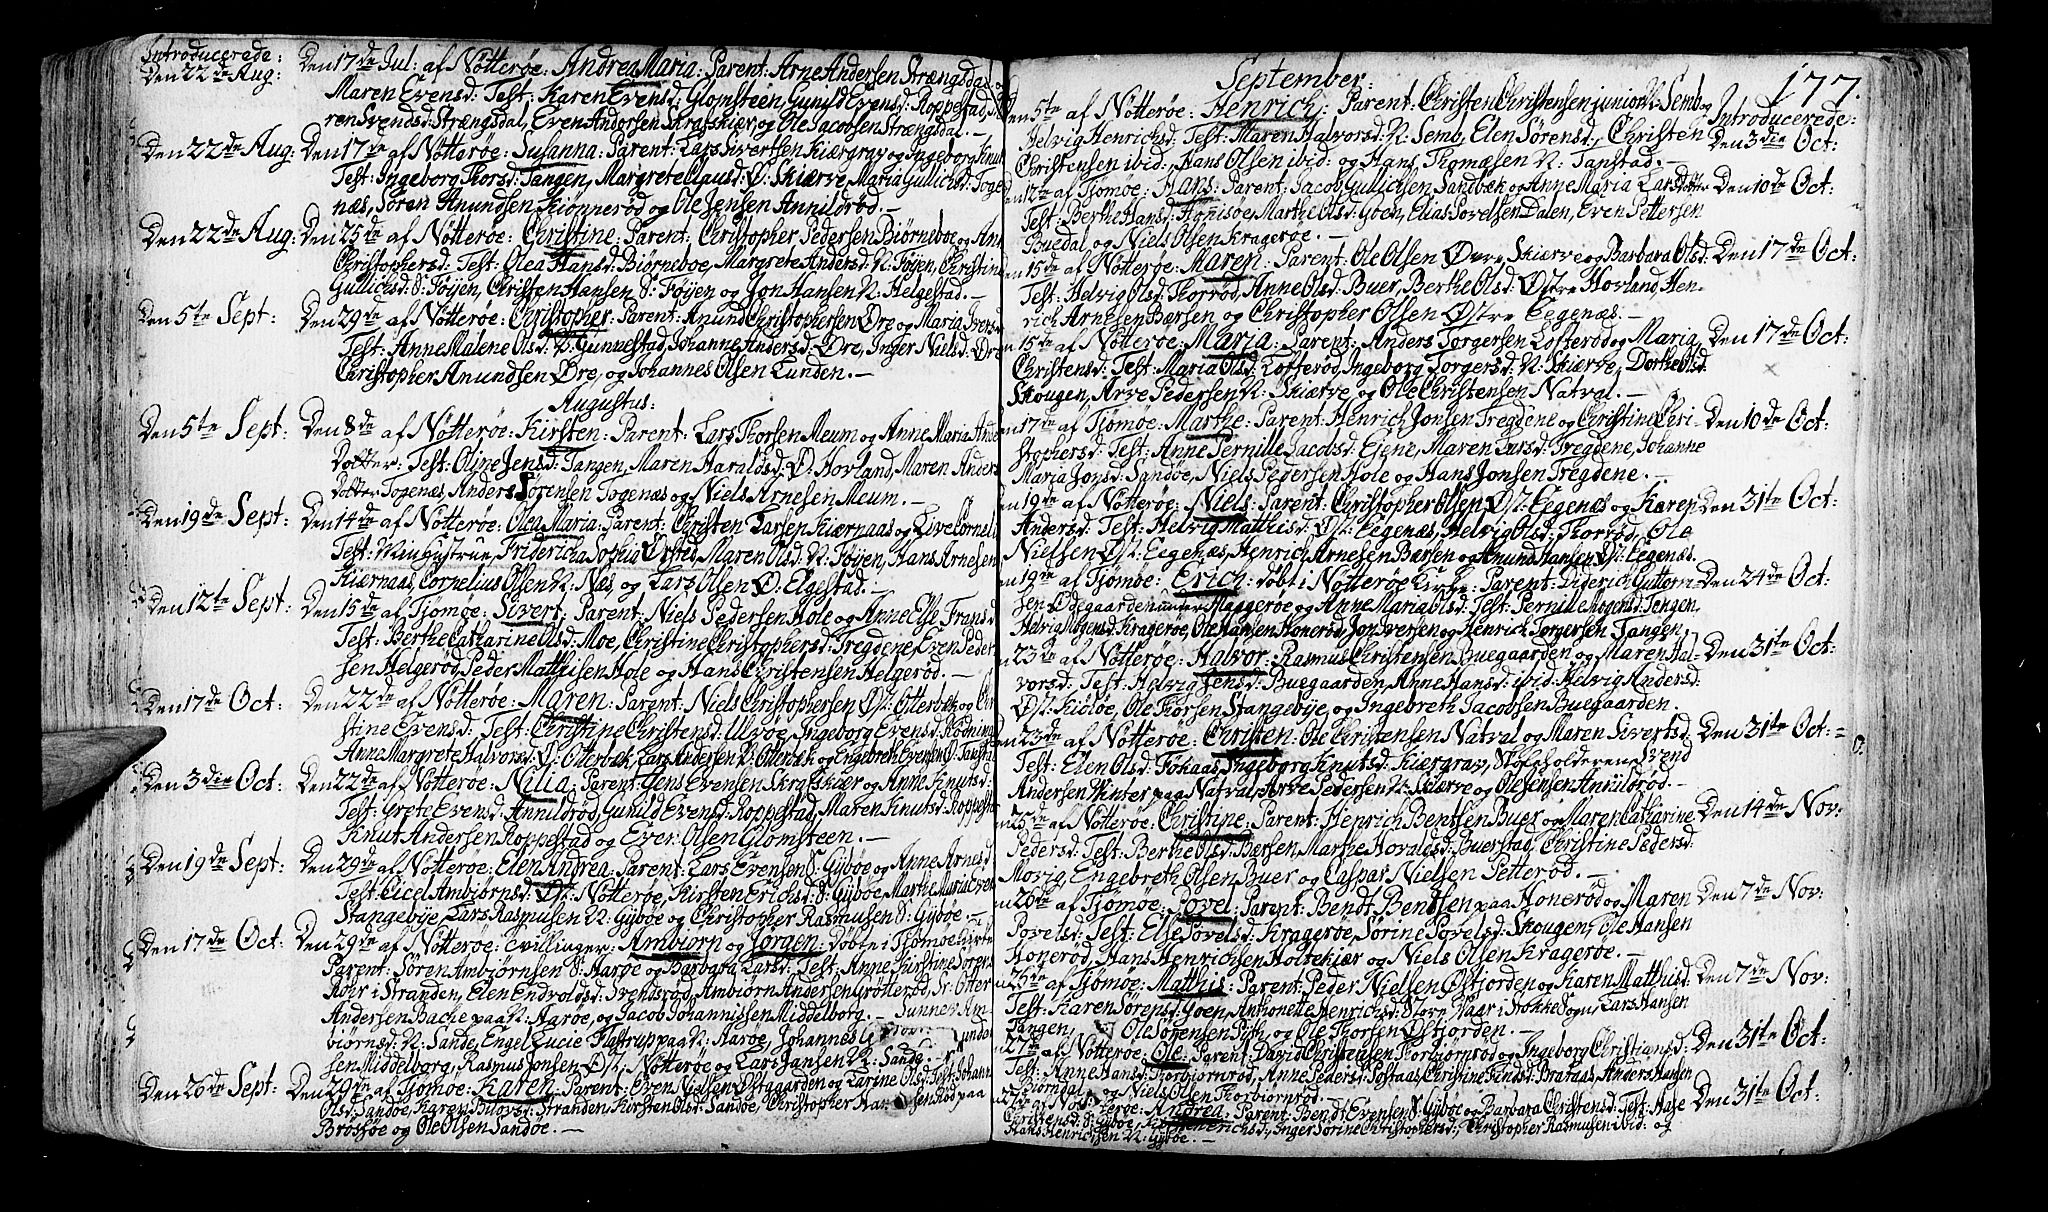 Introducerede:
Den 22de Aug: Den 17de Jul: af Nøtterøe: Andrea Maria: Parent: Arne Andersen Strængsdal
Maren Evensd: Test: Karen Evensd: Glomsteen, Gunild Evensd: Roppestad,
ren Svendsd: Strængsdal, Even Andersen Skrafskiær, og Ole Jacobsen Strængsdal. —
Den 22de Aug: Den 17de af Nøtterøe: Susanna: Parent: Lars Sivertsen Kiærgrav og Ingeborg Knut
Test: Ingeborg Thorsd: Tangen, Margrete Clausd: Ø: Skiærve, Maria Gullichsd: Toge
næs, Søren Knudsen Kionnerød og Ole Jensen Annildrød. —
Den 22de Aug: Den 25de af Nøtterøe: Christine: Parent: Christopher Pedersen Biørneboe og
Christophersd: Test: Olea Hansd: Biørneboe, Margrete Andersd: N: Føyen, Christine
Gullichsd: S: Føyen, Christen Hansen S: Føyen og Jon Hansen N: Helgestad. —
Den 5te Sept: Den 29de af Nøtterøe: Christopher: Parent: Anund Christophersen Øre og Maria Iversd
Test: Anne Malene Olsd: N: Gunnestad, Johanne Andersd: Øre, Inger Nielsd: Øre
Christopher Anundsen Øre, og Johannes Olsen Lunden. —
Augustus:
Den 5te Sept: Den 8de af Nøtterøe: Kirsten: Parent: Lars Thorsen Meum og Anne Maria Ande
Dotter: Test: Oline Jensd: Tangen, Maren Haraldsd: Ø: Hovland, Maren Anders
Dotter Togenæs, Anders Sørensen Togenæs og Niels Arnesen Meum. —
Den 19de Sept: Den 14de af Nøtterøe: Olea Maria: Parent: Christen Larsen Kiærnaas og Live Cornel
Test: Min Hustrue, Fridericha Sophia Ørsted, Maren Olsd: N: Føyen, Hans Arnesen
Kiærnaas, Cornelius Olsen N: Næs, og Lars Olsen Ø: Elgestad. —
Den 12te Sept: Den 15de af Tjømøe: Sivert: Parent: Niels Pedersen Hole og Anne Else Fransd
Test: Berthe Catharine Olsd: Moe, Christine Christophersd: Tregdene, Even Peder
sen Helgerød, Peder Matthisen Hole og Hans Christensen Helgerød. —
Den 17de Oct: Den 22de af Nøtterøe: Maren: Parent: Niels Christophersen Øst: Otterbæk og
stine Evensd: Test: Christine Christensd: Ulvøe, Ingeborg Evensd: Rødning
Anne Margrete Halvorsd: Ø: Otterbæk, Lars Andersen Ø: Otterbæk og Engebreth Evensen Ø:
Den 3die Oct: Den 22de af Nøtterøe: Nilia: Parent: Jens Evensen Skrafskiær og Anne Knutsd:
Test: Grete Evensd: Annildrød, Gunild Evensd: Roppestad, Maren Knutsd: Roppest
Knut Andersen Roppestad og Even Olsen Glomsteen. —
Den 19de Sept: Den 29de af Nøtterøe: Elen Andrea: Parent: Lars Evensen S: Gybøe og Anne Arnesd
Test: Cicel Ambiørnsd: Øst: Nøtterøe, Kirsten Erichsd: S: Gybøe, Marthe Maria Even
Stangebye, Lars Rasmusen N: Gybøe og Christopher Rasmusen S: Gybøe. —
Den 17de Oct: Den 29de af Nøtterøe: tvillinger: Ambiørn og Jørgen: døbte i Tjømøe Kirke
Parent: Søren Ambiørnsen S: Aarøe og Barbara Larsd: Test: Anne Kirstine Sørens
Roir i Stranden, Elen Endvoldsd: Svendsrød, Ambiørn Andersen Grøtterød, Sr: Otter
Andersen Bache paa N: Aarøe, og Jacob Johannissen Middelborg. — Sunnev Am
biørnsd: N: Sande, Engel Lucie Flastrup paa N: Aarøe, Johannes
sen Middelborg, Rasmus Jonsen Øst: Nøtterøe og Lars Jansen N: Sande. —
Den 26de Sept: Den 29de af Tjømøe: Karen: Parent: Even Nielsen Østgaarden og Karine Olsd: Test: Johann
Olsd: Sandøe, Karen Stranden, Kirsten Olsd: Sandøe, Christopher Hansen Rød paa
Brøtsøe og Ole Olsen Sandøe. —
September:
177.
Introducerede:
5te af Nøtterøe: Henrich: Parent: Christen Christensen junior N: Semb og
Helvig Henrichsd: Test: Maren Halvorsd: N: Semb, Elen Sørensd:, Christen Den 3die Oct:
Christensen ibid:, Hans Olsen ibid: og Hans Thomæsen N: Tanstad. —
12te af Tjømøe: Hans: Parent: Jacob Gullichsen Sandbæk og Anne Maria Larsdotter Den 10de Oct:
Test: Berthe Hansd: Honisøe, Marthe Olsd: Goen, Elias Povelsen Dalen, Even Pettersen
Buedal og Niels Olsen Kragerøe. —
15de af Nøtterøe: Maren: Parent: Ole Olsen Øvre Skiærve og Barbara Olsd: Den 17de Oct:
Test: Helvig Olsd: Thorrød, Anne Olsd: Buer, Berthe Olsd: Østre Hovland, Hen-
rich Arnesen Bærsen og Christopher Olsen Østre Eegenæs. —
15de af Nøtterøe: Maria: Parent: Anders Torgersen Lofterød og Maria Den 17de Oct:
Christensd: Test: Maria Olsd: Lofterød, Ingeborg Torgersd: N: Skiærve, Dorthe Olsd:
Skougen, Arve Pedersen N: Skiærve, og Ole Christensen Natval. —
17de af Tjømøe: Marthe: Parent: Henrich Jonsen Tregdene og Christine Chri- Den 10de Oct:
stophersd: Test: Anne Pernille Jacobsd: Eiene, Maren Larsd: Tregdene, Johanne
Maria Jonsd: Sandøe, Niels Pedersen Hole og Hans Jonsen Tregdene. —
19de af Nøtterøe: Niels: Parent: Christopher Olsen Øst: Eegenæs og Karen Den 31te Oct:
Andersd: Test: Helvig Matthisd: Øst: Eegenæs, Helvig Olsd: Thorrød, Ole
Nielsen Øst: Eegenæs, Henrich Arnesen Bærsen og Anund Hansen Øst: Eegenæs.
19de af Tjømøe: Erich: døbt i Nøtterøe Kirke: Parent: Diderich Guttorm Den 24de Oct:
sen Ødegaarden under Maggerøe og Anne Maria Olsd: Test: Pernille Mogensd: Tangen,
Helvig Mogensd: Kragerøe, Ole Hansen Honerød, Jon Iversen og Henrich Torgersen Tangen.
23de af Nøtterøe: Halvor: Rasmus Christensen Buegaarden og Maren Hal- Den 31te Oct:
vorsd: Test: Helvig Jensd: Buegaarden, Anne Hansd: ibid: Helvig Andersd:
Øst: Kiøløe, Ole Thorsen Stangebye, og Ingebreth Jacobsen Buegaarden.
23de af Nøtterøe: Christen: Ole Christensen Natval og Maren Sivertsd: Den 31te Oct:
Test: Elen Olsd: Fokaas, Ingeborg Knutsd: Kiærgrav, Skoleholderen Svend
Andersen Winter paa Natval, Arve Pedersen N: Skiærve og Ole Jensen Annildrød. —
25de af Nøtterøe: Christine: Parent: Henrich Bentsen Buer og Maren Catharine Den 14de Nov:
Pedersd: Test: Berthe Olsd: Bærsen, Marthe Hovaldsd: Buerstad, Christine Pedersd:
Movig, Engebreth Olsen Buer og Caspar Nielsen Petterød. —
26de af Tjømøe: Povel: Parent: Bendt Bendtsen paa Honerød og Maren Den 7de Nov:
Povelsd: Test: Else Povelsd: Kragerøe, Sørine Povelsd: Skougen, Ole Hansen
Honerød, Hans Henrichsen Holtekiær og Niels Olsen Kragerøe. —
26de af Tjømøe: Matthis: Parent: Peder Nielsen Østjorden og Karen Matthisd: Den 7de Nov:
Test: Karen Sørensd: Goen, Anthonette Henrichsd: Store Vaar i Stokke Sogn, Lars Hansen
Tangen, Ole Sørensen og Ole Thorsen Østjorden. —
27de af Nøtterøe: Ole: Parent: David Christensen Thorbiørnrød og Ingeborg Christiansd: Den 31te Oct:
Test: Anne Hansd: Thorbiørnrød, Anne Pedersd: Christine Findsd: Brataas, Anders Hansen
Biørndal og Niels Olsen Thorbiørnrød. —
27de af Nøtterøe: Andrea: Parent: Bendt Evensen S: Gybøe og Barbara Christensd: Test: Aase Den 31te Oct:
Christensd: S: Gybøe, Henrichsd:, Inger Sørine Christophersd:, Christopher Rasmusen ibid: og
Hans Henrichsen N: Gybøe. —